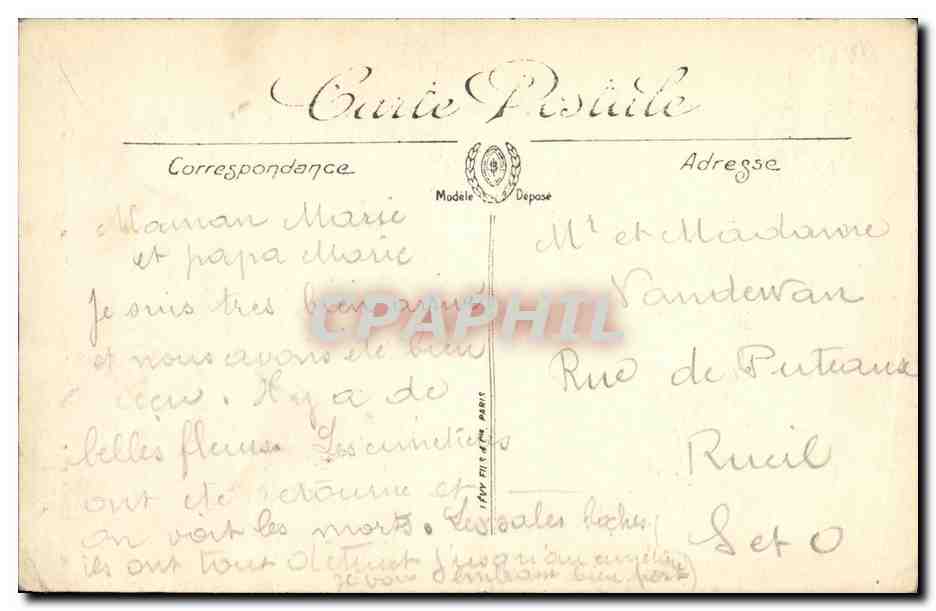 Carte Postale
Correspondance
Adresse
Modèle Déposé
Maman Marie
et papa Marie
Je suis tres bien arrivé
et nous avons été bien
reçu. Il y a de
belles fleurs. Les cimetieres
ont été retourne et
on voit les morts. Les sales boches
ils ont tout détruit jusqu'au
je vous embrasse bien fort
LÉVY FILS & Cie PARIS
Mr et Madame
Vandewan
Rue de Puteaux
Rueil
S et O
CPAPHIL